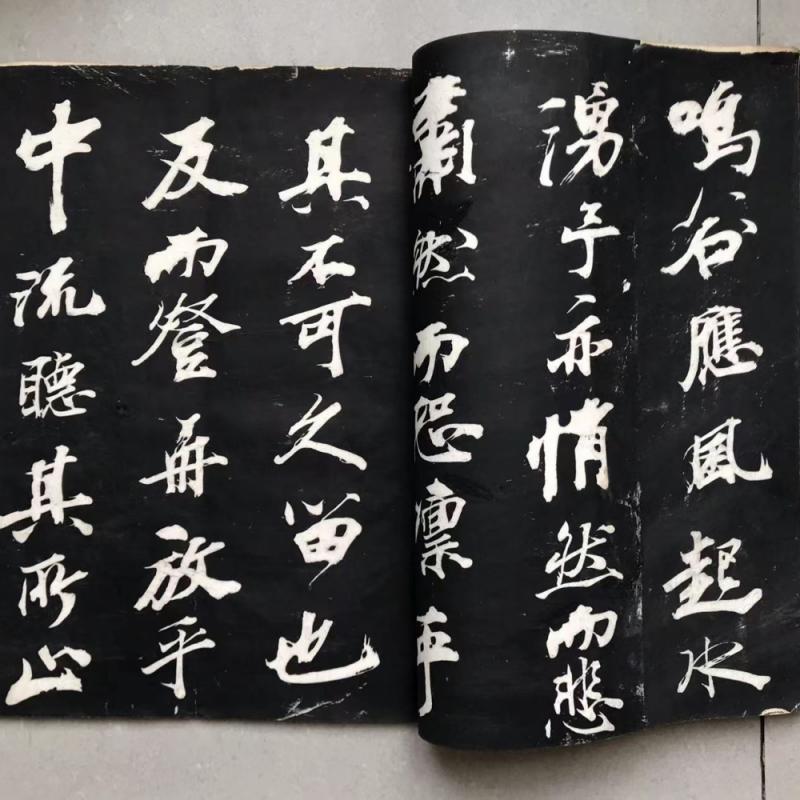 鳴谷應風起水
湧予亦悄然而悲
肅然而恐凛乎
其不可久留也
反而登舟放乎
中流聽其所止